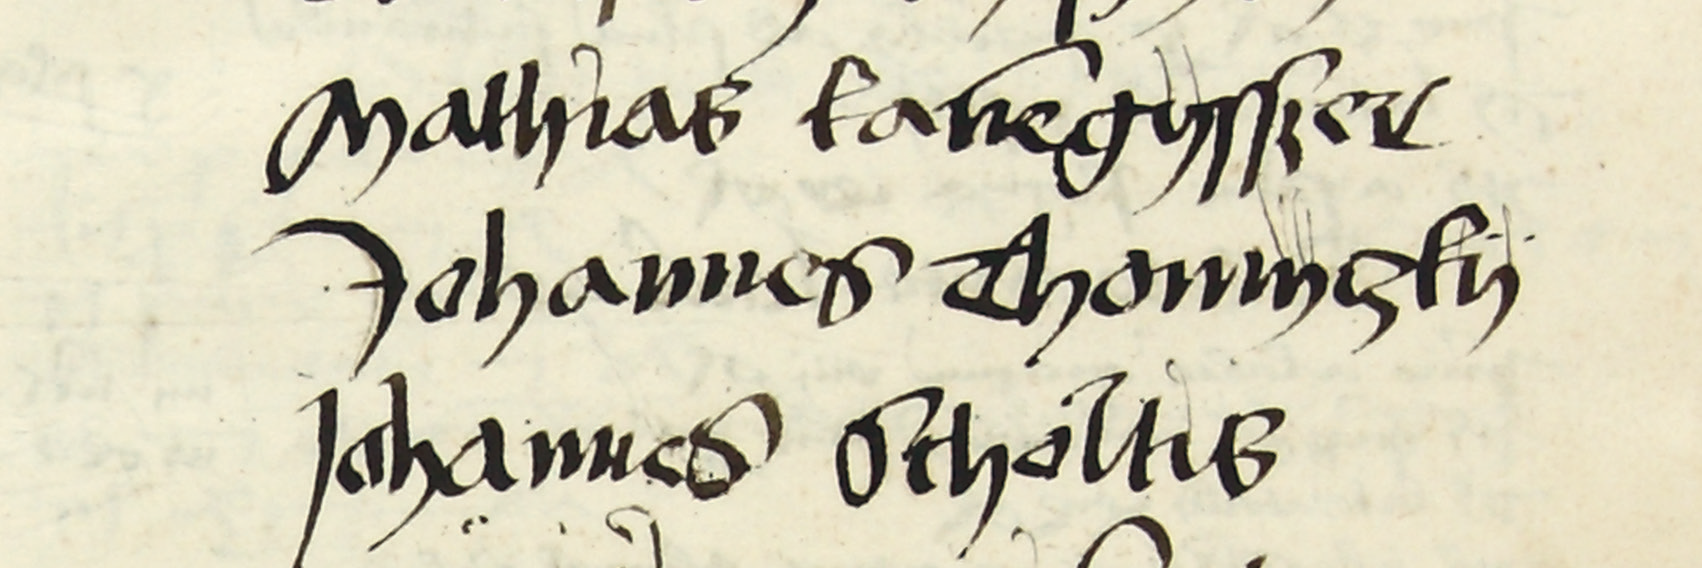 Mathias kanegysser
Johannes Thonnigkij
Johannes Scholtis